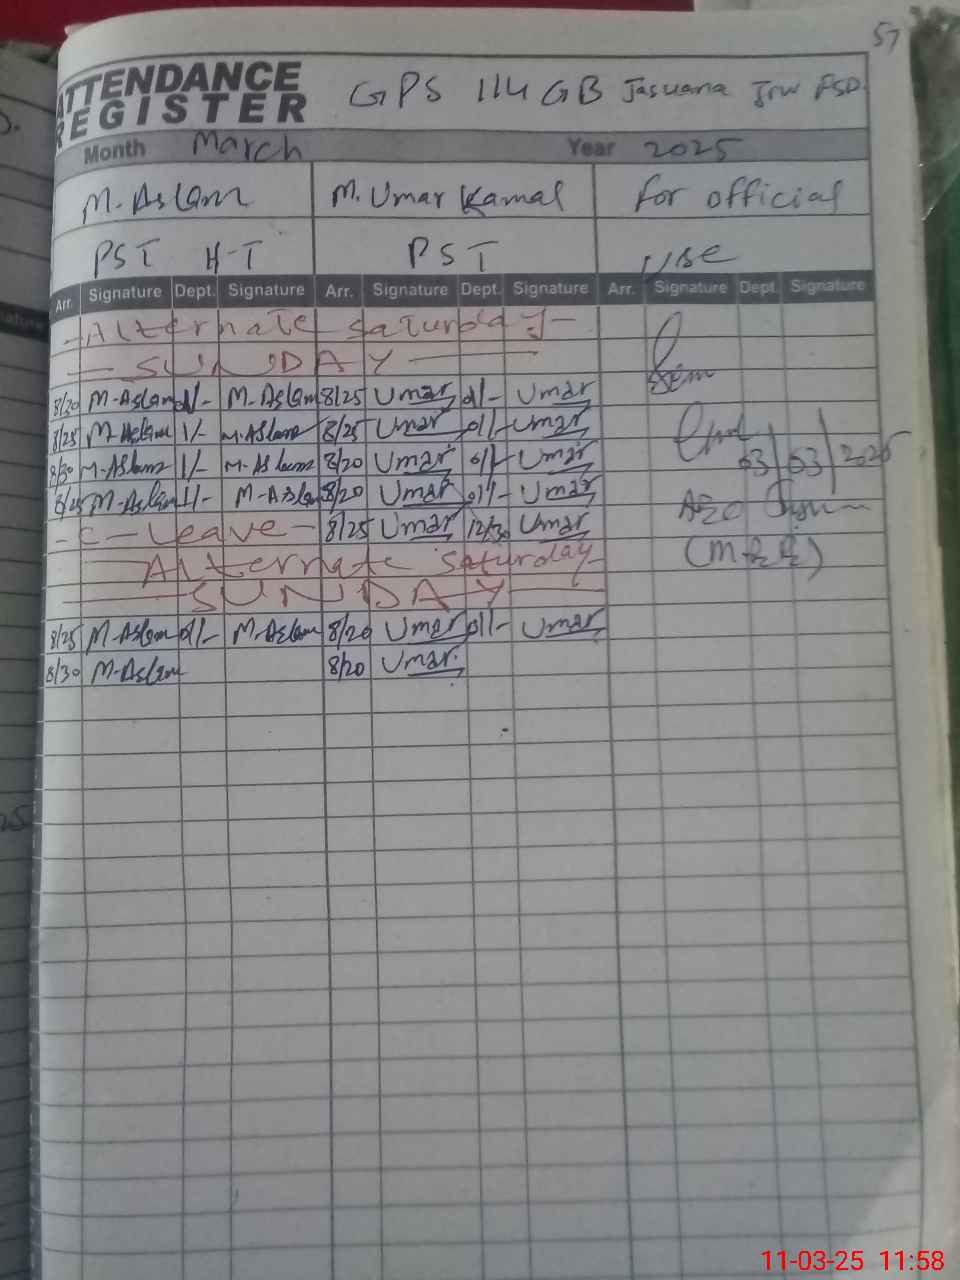 57
ATTENDANCE REGISTER GPS 114 GB Jasuana Jrw FSD.
Month March Year 2025
M. Aslam M. Umar Kamal for official
PST H-T PST use
Arr. Signature Dept. Signature Arr. Signature Dept. Signature Arr. Signature Dept. Signature
- Alternate saturday -
- SUNDAY -
8/30 M-Aslam 1/- M-Aslam 8/25 Umar 01/- Umar
8/25 M-Aslam 1/- M-Aslam 8/25 Umar 01/- Umar
8/30 M-Aslam 1/- M-Aslam 8/20 Umar 01/- Umar 03/03/2025
8/25 M-Aslam 1/- M-Aslam 8/20 Umar 01/- Umar AEO
- C - Leave - 8/25 Umar 12/30 Umar
Alternate saturday
SUNDAY
8/25 M-Aslam 01/- M-Aslam 8/20 Umar 01/- Umar
8/30 M-Aslam 8/20 Umar
11-03-25 11:58